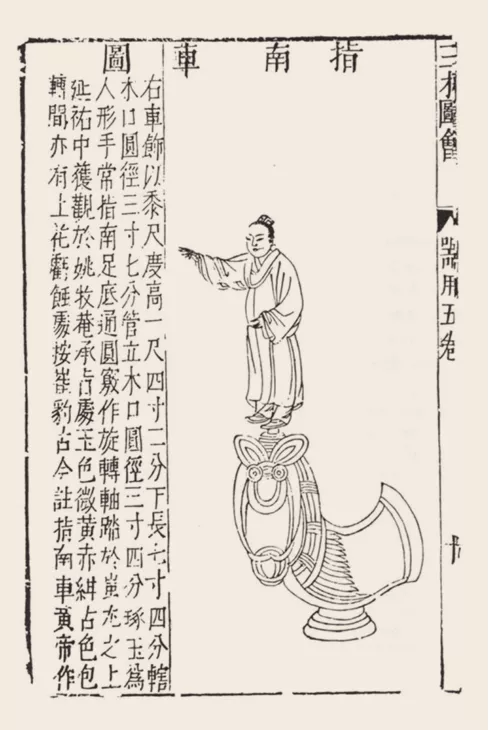 指南車圖
三才圖會
器用五卷
右車飾以黍尺度高一尺四寸二分下長七寸四分轄
木口圓徑三寸七分管立木口圓徑三寸四分琢玉為
人形手常指南足底通圓竅作旋轉軸踏於蚩尤之上
延祐中獲觀於姚牧菴承占處玉色微黃赤紺占色包
轉間亦有土花蝕處按崔豹古今註指南車黃帝作